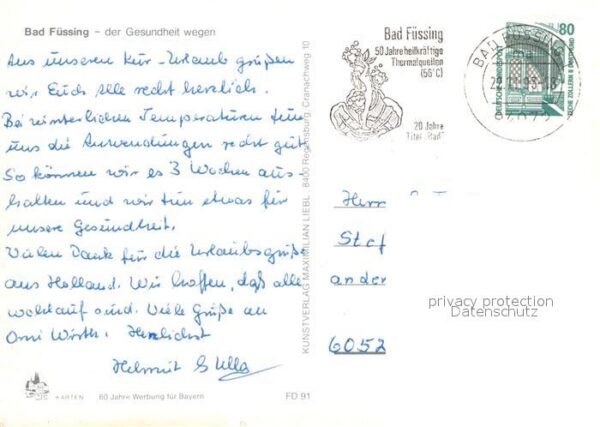 Bad Füssing – der Gesundheit wegen
Aus unseren Kur-Urlaub grüßen
wir Euch alle recht herzlich.
Bei winterlichen Temperaturen tun
uns die Anwendungen recht gut.
So können wir es 3 Wochen aus-
halten und wir tun etwas für
unsere Gesundheit.
Vielen Dank für die Urlaubsgrüße
aus Holland. Wir hoffen, daß alle
wohlauf sind. Viele Grüße an
Omi Wirth. Herzlichst
Helmut & Ulla
KARTEN
60 Jahre Werbung für Bayern
FD 91
KUNSTVERLAG MAXIMILIAN LIEBL · 8400 Regensburg, Cranachweg 10
Bad Füssing
50 Jahre heilkräftige
Thermalquellen
(56°C)
20 Jahre
Titel "Bad"
BAD FÜSSING
80
DEUTSCHE BUNDESPOST
ZECHE ZOLLERN II DORTMUND
Herr
Stef
ander
6052
privacy protection
Datenschutz